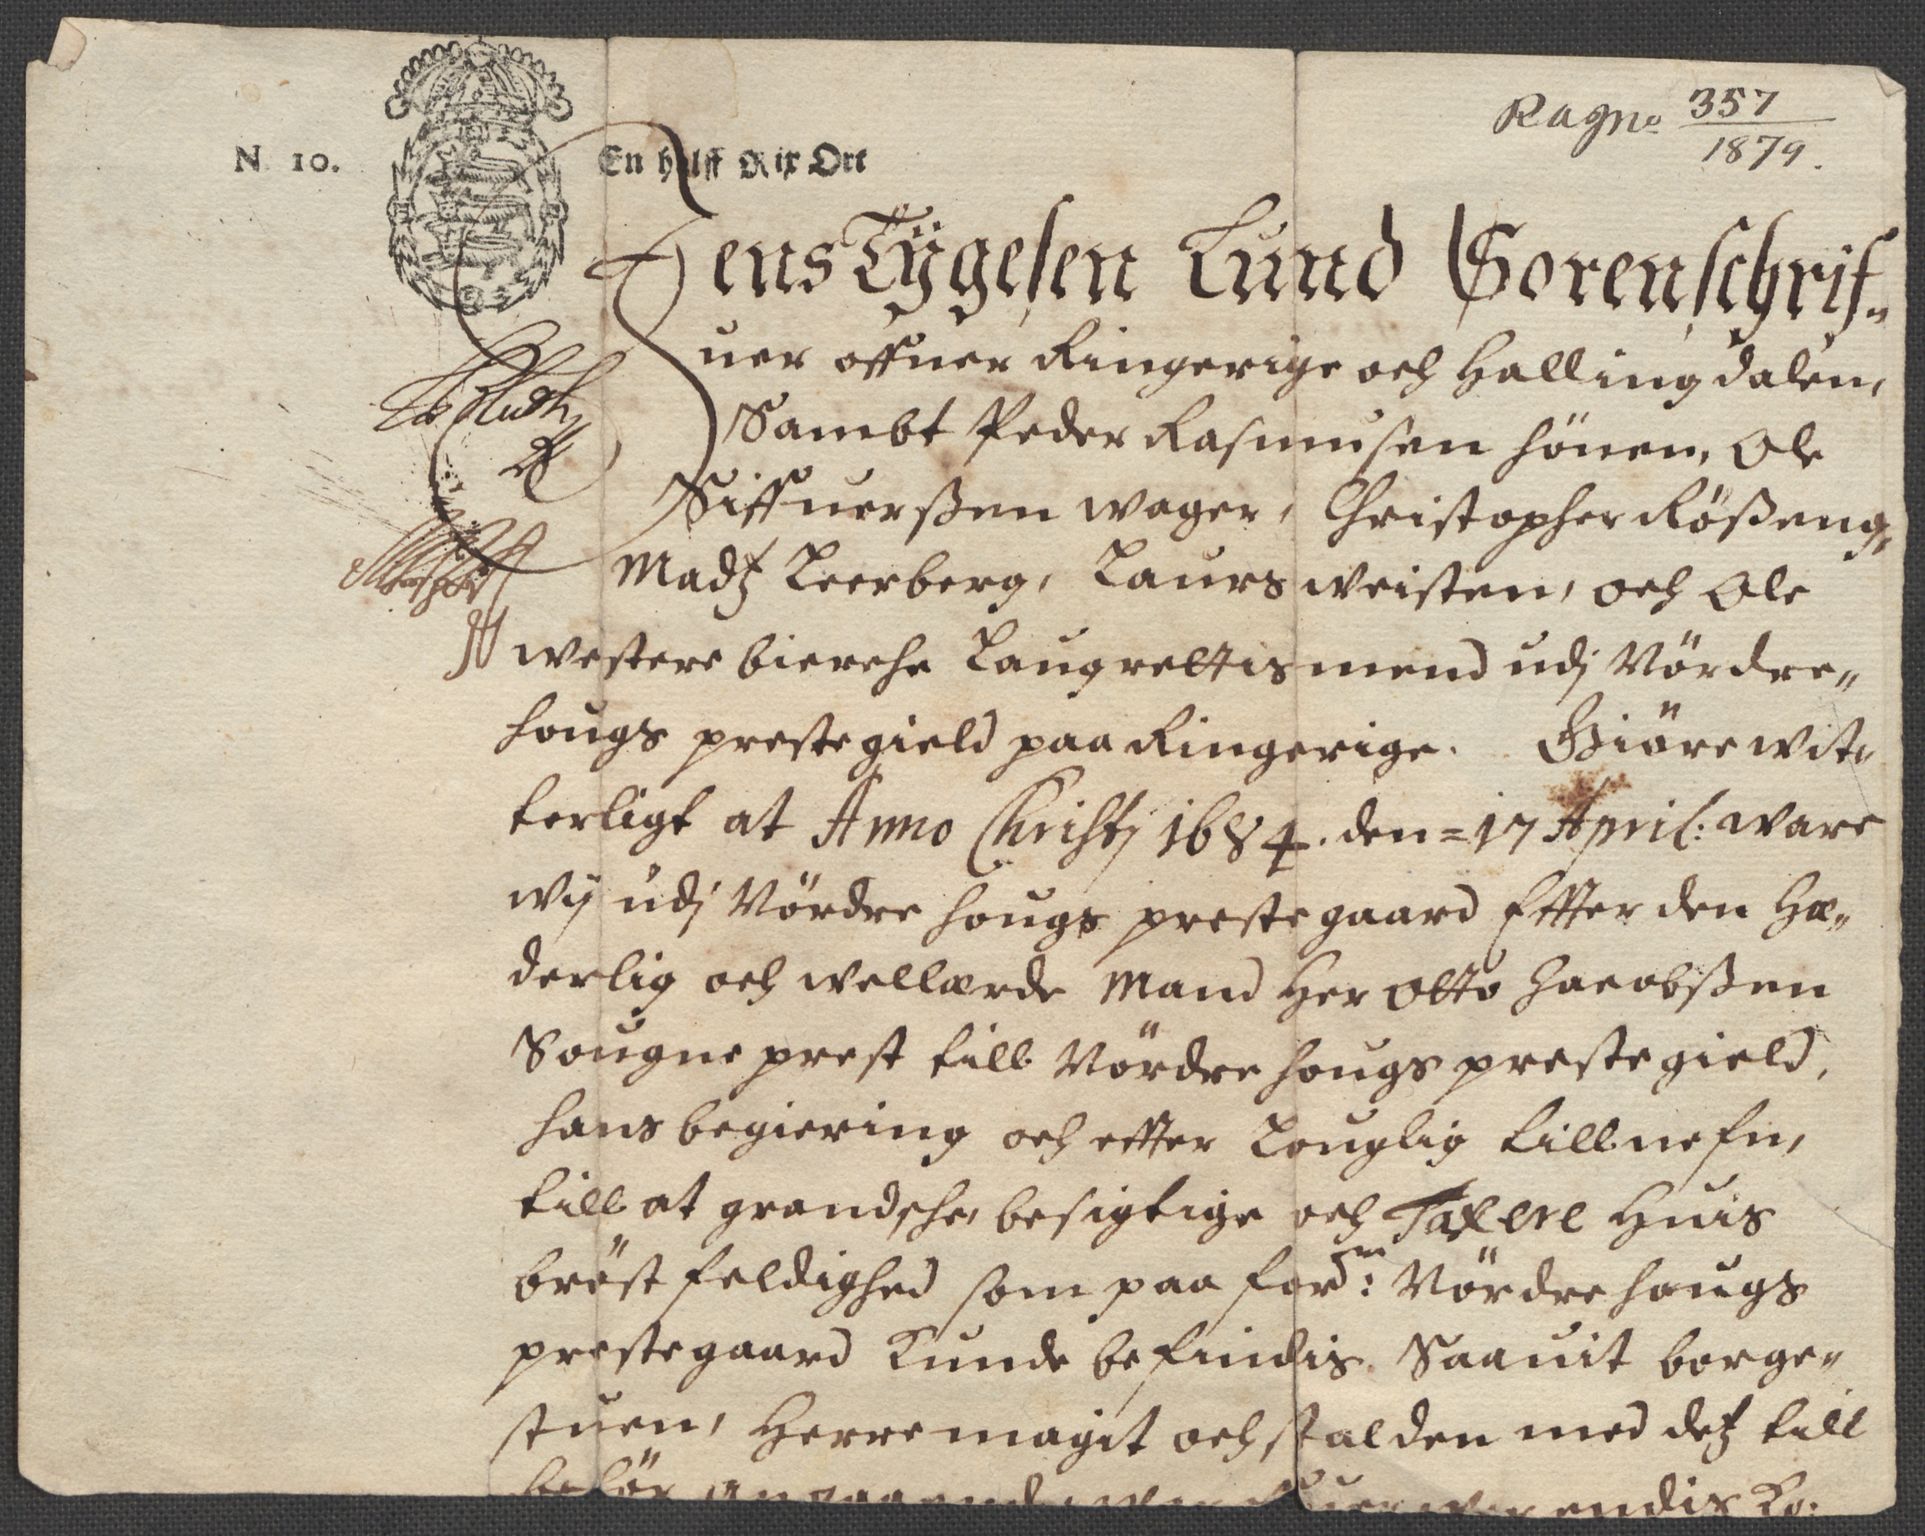 Ragno 357
1879.
N. 10. En halff Rix Ort
Jens Tÿgesen Lund Sorenschrif„
uer offuer Ringerige och Hallingdalen,
Sambt Peder Rasmusen Hönen, Ole
Siffuerßen Wager, Christopher Rößeng,
Madtz Leerberg, Laurs Weisten, och Ole
Westere Bierche Laugrettismend udj Nördre„
hougs prestegield paa Ringerige. Giöre wit„
terligt at Anno Christj 1684. den = 17 April: ware
wij udj Nördrehougs prestegaard Effter den Hæ„
derlig och wellærde Mand Her Otto Jacobßen
Sougneprest till Nördrehougs prestegield,
hans begiering och effter Louglig tillnefn,
till at grandsche, besigtige och Taxere Huis
bröstfeldighed som paa ford:m Nördrehougs
prestegaard Kunde befindis. Saauit borge„
stuen, Herremagit och stalden med detz till
behör